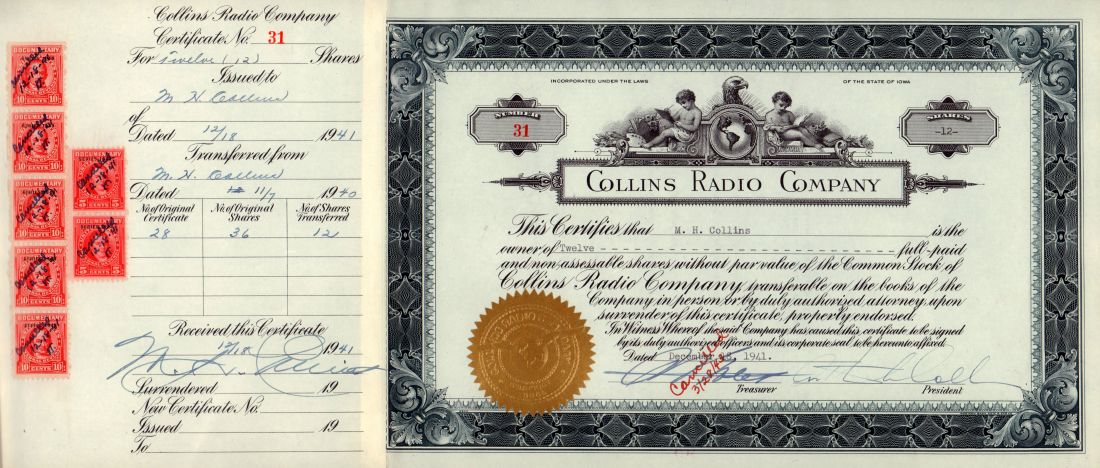 Collins Radio Company
Certificate No. 31
For Twelve (12) Shares
Issued to
M. H. Collins
of
Dated 12/18 1941
Transferred from
M. H. Collins
Dated 11/7 1940
No. of Original Certificate No. of Original Shares No. of Shares Transferred
28 36 12
Received this Certificate
12/18 1941
M. H. Collins
Surrendered 19
New Certificate No.
Issued 19
To
DOCUMENTARY
10 CENTS 10
DOCUMENTARY
10 CENTS 10
DOCUMENTARY
10 CENTS 10
DOCUMENTARY
10 CENTS 10
DOCUMENTARY
10 CENTS 10
DOCUMENTARY
5 CENTS 5
DOCUMENTARY
5 CENTS 5
INCORPORATED UNDER THE LAWS OF THE STATE OF IOWA
NUMBER
31
SHARES
-12-
COLLINS RADIO COMPANY
This Certifies that M. H. Collins is the
owner of Twelve - - - - - - - - - - - - - - - - - - - - - - - full-paid
and non-assessable shares without par value of the Common Stock of
Collins Radio Company transferable on the books of the
Company in person or by duly authorized attorney upon
surrender of this certificate, properly endorsed.
In Witness Whereof the said Company has caused this certificate to be signed
by its duly authorized officers and its corporate seal to be hereunto affixed.
Dated December 18, 1941.
Cancelled
Treasurer President